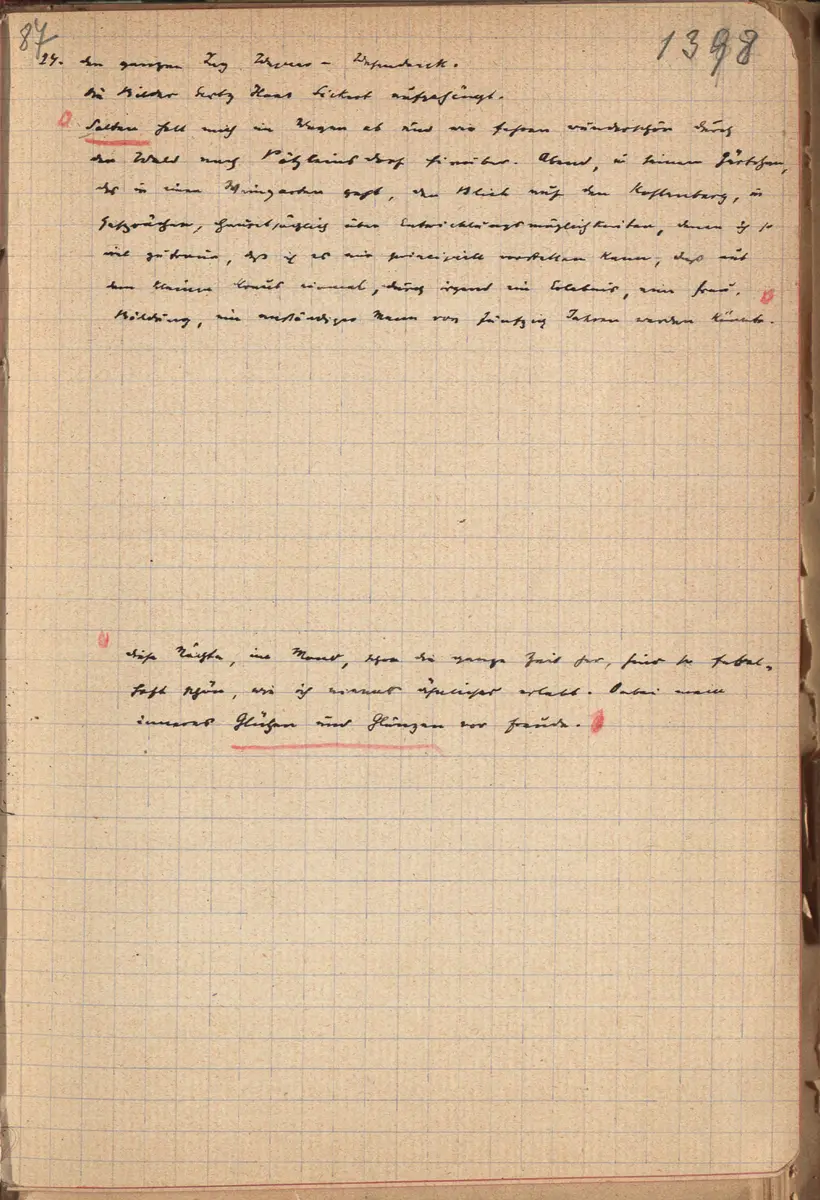 87
1398
24. den ganzen Tag Wagner – Wesendonck.
die Bilder Hans aufgehängt.
Salten holt mich im Wagen ab und wir fahren wunderschön durch
den Wald nach Pötzleinsdorf hinüber. Abend, in seinem Gärtchen,
das in einen Weingarten geht, den Blick auf den Kahlenberg, in
Gesprächen, hauptsächlich über Entwicklungsmöglichkeiten, denen ich so
viel zutraue, daß ich es mir principiell vorstellen kann, daß aus
dem kleinen Kraus einmal, durch irgend ein Erlebnis, eine Frau,
Bildung, ein anständiger Mann von fünfzig Jahren werden könnte.
diese Nächte, im Mond, schon die ganze Zeit her, sind so fabel-
haft schön, wie ich niemals ähnliches erlebt. Dabei mein
inneres Glühen und Glänzen vor Freude.